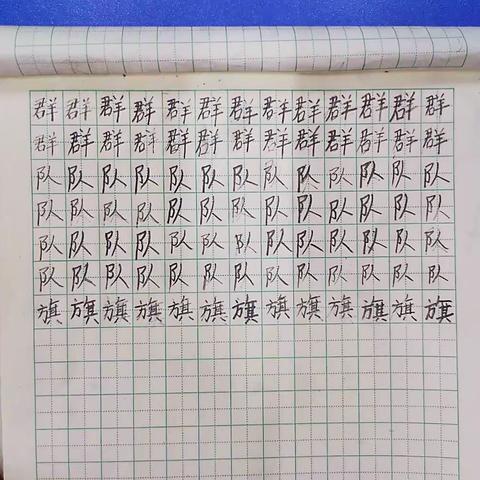 群群群群群群群群群群群群群
群群群群群群群群群群群群群
队队队队队队队队队队队队队
队队队队队队队队队队队队队
队队队队队队队队队队队队队
队队队队队队队队队队队队队
旗旗旗旗旗旗旗旗旗旗旗旗旗